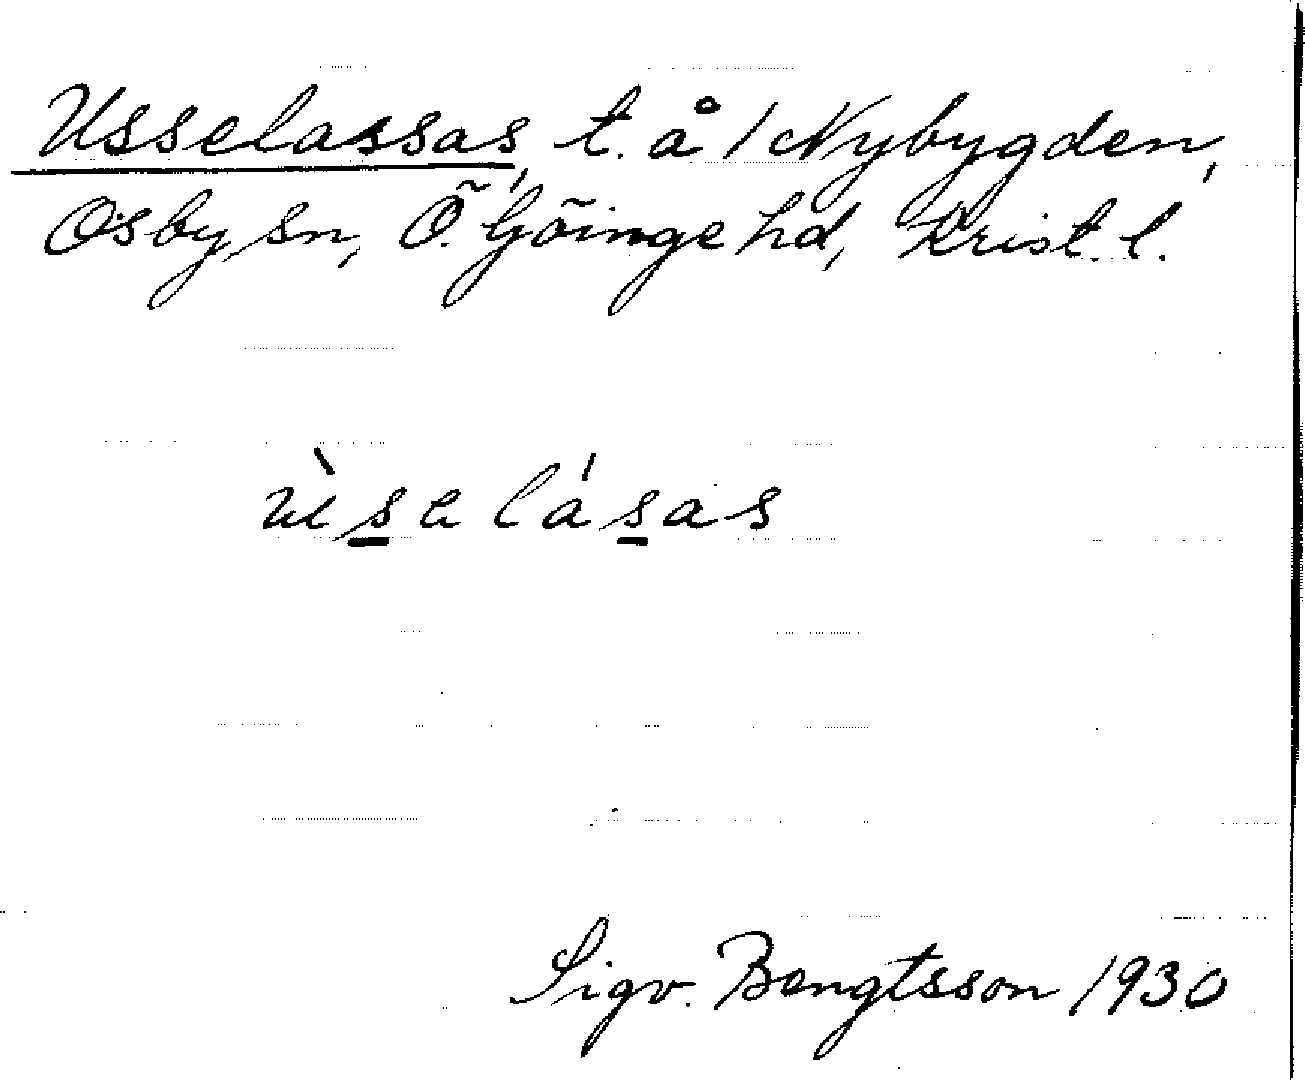 Usselassas, t. å 1 Nybygden,
Osby sn, Ö. Göinge hd, Krist. l.
ùse lásas
Sigv. Bengtsson 1930